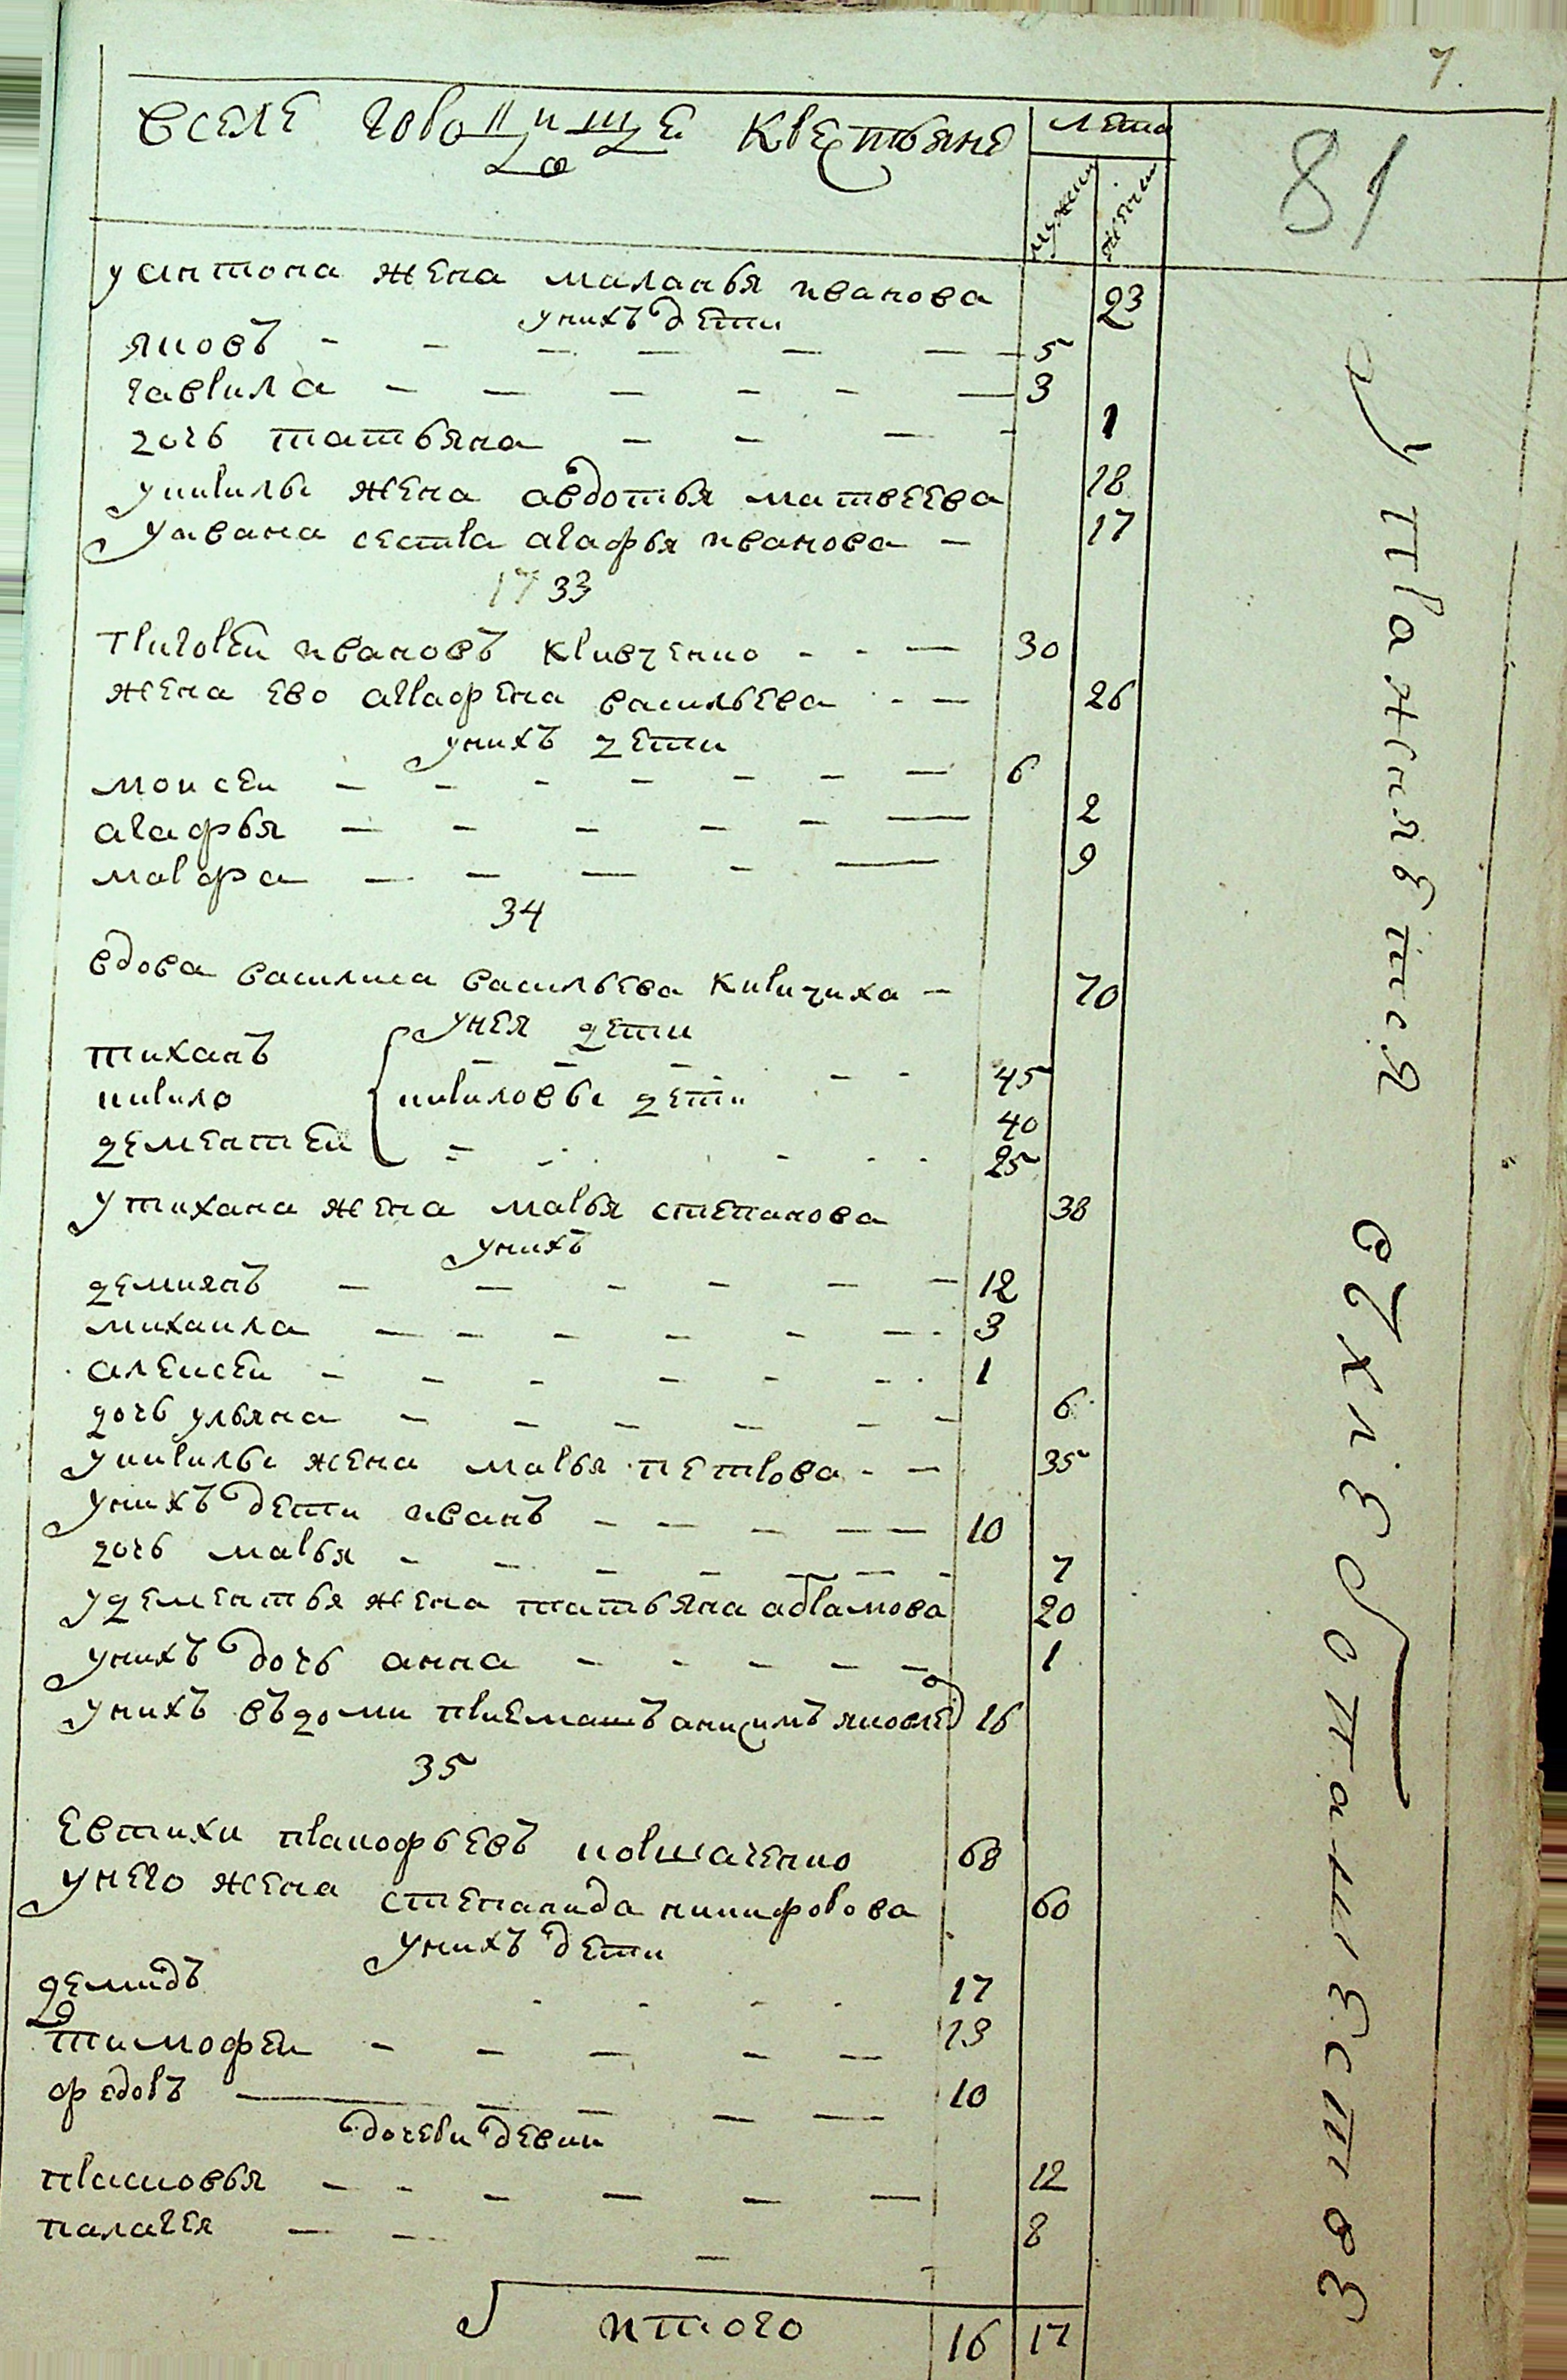 7.
81
вселе городище крестьяне
лета
мужеск
женск
уантона жена маланья иванова 23
унихъ дети
яковъ - - - - - - 5
гаврила - - - - - - 3
дочь татьяна - - - - 1
укирилы жена авдотья матвеева 18
уивана сестра агафья иванова - 17
1733
григореи ивановъ кривченко - - - 30
жена ево аграфена васильева - - 26
унихъ дети
моисеи - - - - - - - 6
агафья - - - - - - 2
марфа - - - - - 9
34
вдова василиса васильева киричиха - 70
унея дети
тиханъ - - - - - 45
кирило кириловы дети 40
дементеи - - - - - 25
утихана жена марья степанова 38
унихъ
демиянъ - - - - - - 12
михаила - - - - - - - 3
алексеи - - - - - - - 1
дочь ульяна - - - - - - 6
укирилы жена марья петрова - - 35
унихъ дети иванъ - - - - - 10
дочь марья - - - - - - - 7
удементья жена татьяна абрамова 20
унихъ дочь анна - - - - - 1
унихъ въдоми приемашъ анисимъ яковлев 16
35
евтихи пракофьевъ коршаченко 68
унего жена степанида никифорова 60
унихъ дети
демидъ - - - - 17
тимофеи - - - - - 13
федоръ - - - - - 10
дочери девки
прасковья - - - - - - 12
палагея - - - 8
итого 16 17